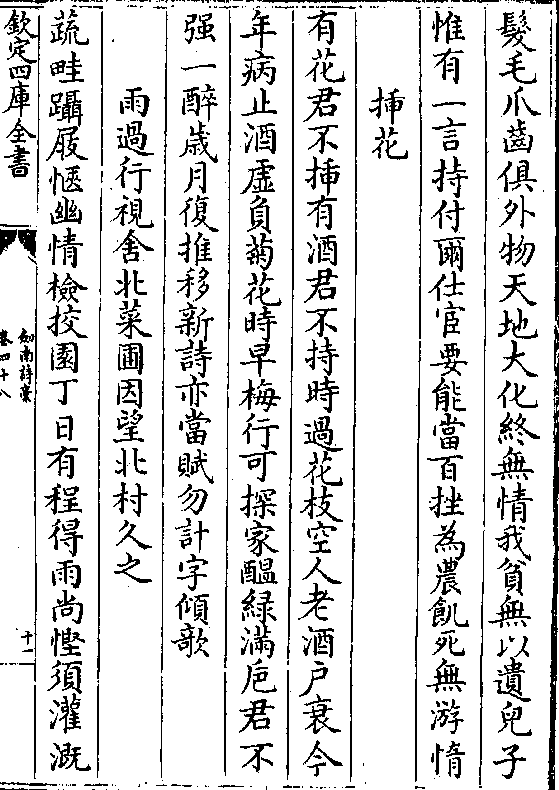 髮毛爪齒俱外物天地大化終無情我貧無以遺兒子
惟有一言持付爾仕宦要能當百挫為農飢死無游惰
揷花
有花君不揷有酒君不持時過花枝空人老酒户衰今
年病止酒虛負菊花時早梅行可探家醖緑滿巵君不
强一醉歲月復推移新詩亦當賦勿計字傾欹
雨過行視舍北菜圃因望北村久之
蔬畦躡屐愜幽情檢挍園丁日有程得雨尚慳須灌溉
欽定四庫全書
劍南詩藁
卷四十八
十一